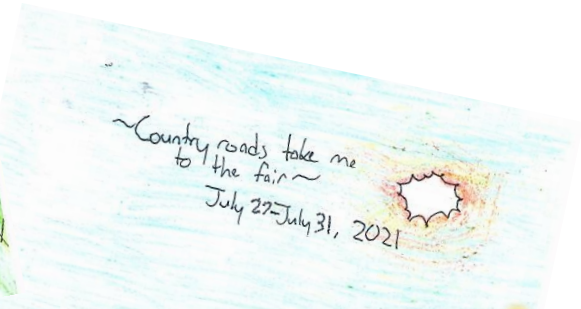 ~Country roads take me
to the fair~
July 22-July 31, 2021